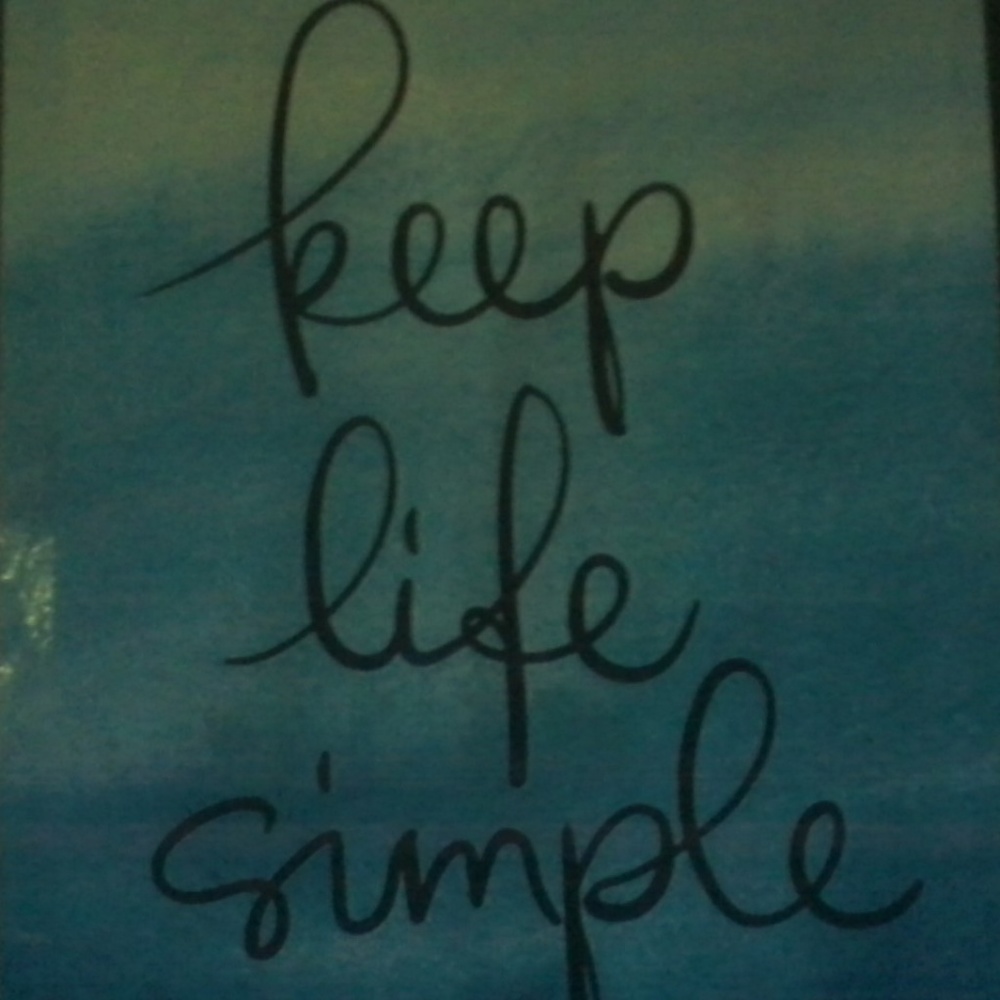 keep
life
simple